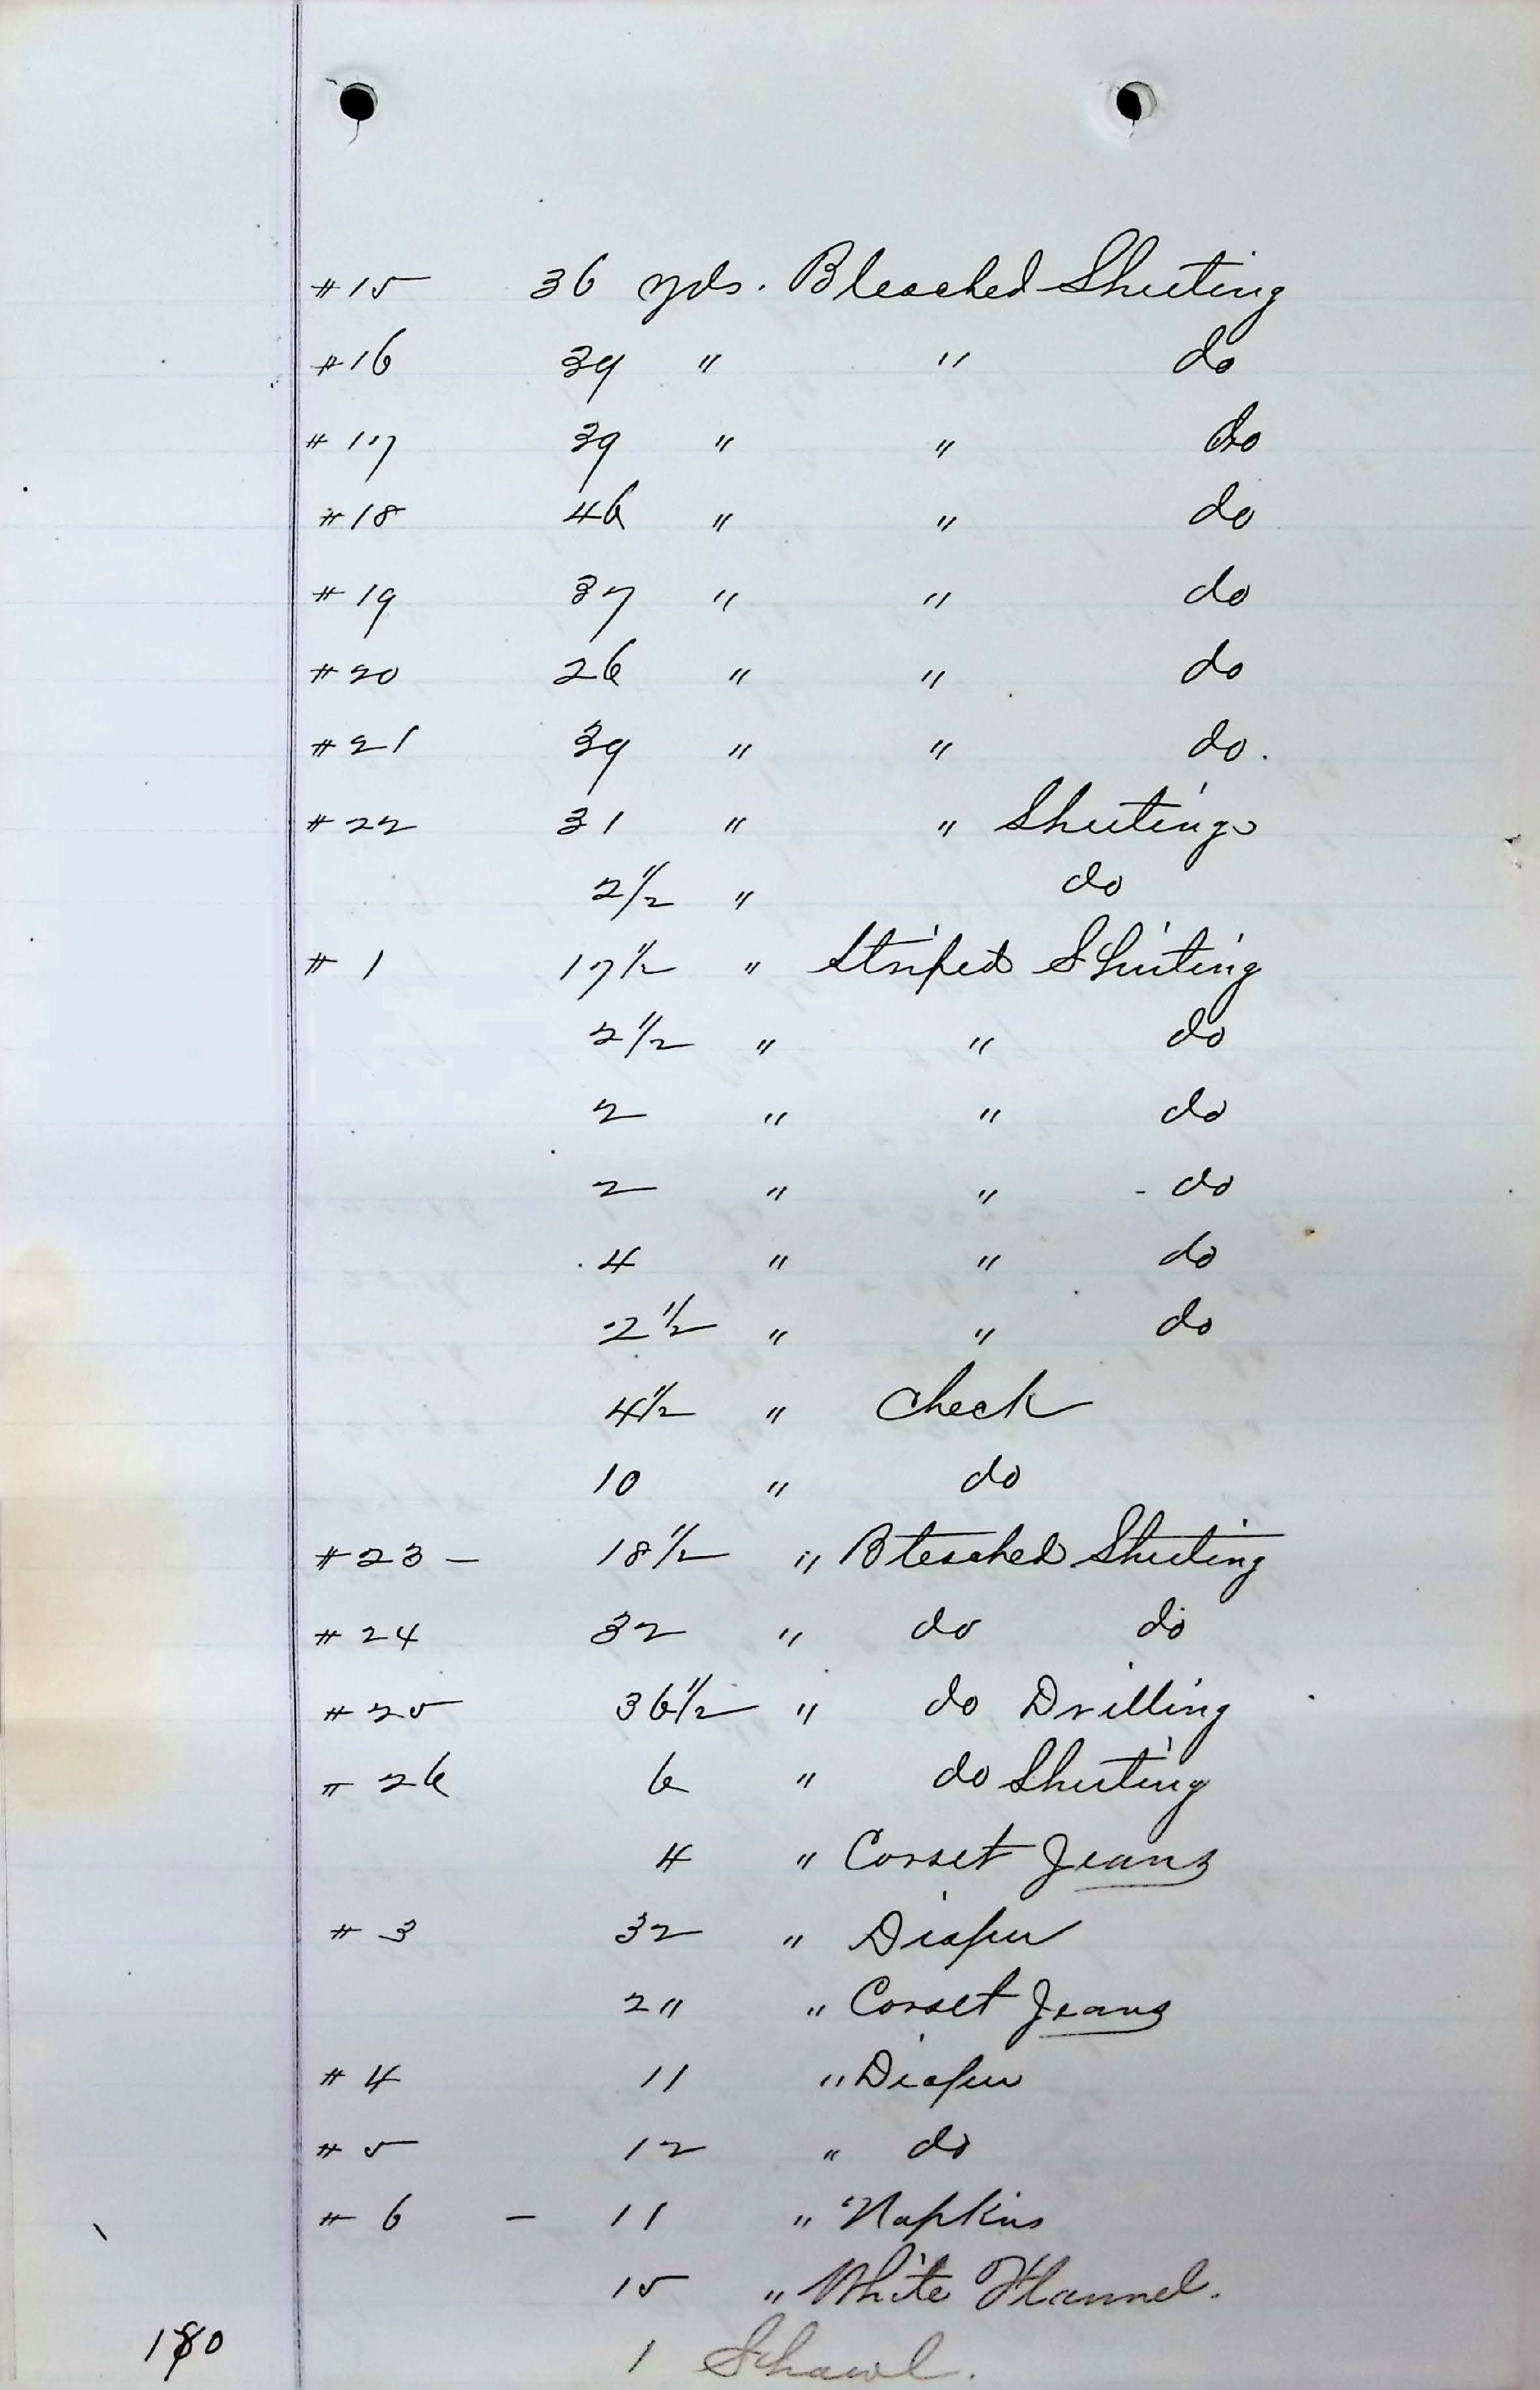 #15 36 yds. Bleached Sheeting
#16 39 " " do
#17 39 " " do
#18 46 " " do
#19 37 " " do
#20 26 " " do
#21 39 " " do.
#22 31 " " Sheeting
2 1/2 " do
#1 17 1/2 " Striped Shirting
2 1/2 " " do
2 " " do
2 " " - do
4 " " do
2 1/2 " " do
4 1/2 " Check
10 " do
#23 - 18 1/2 " Bleached Sheeting
#24 32 " do do
#25 36 1/2 " do Drilling
#26 6 " do Sheeting
4 " Corset Jeans
#3 32 " Diaper
2 " " Corset Jeans
#4 11 " Diaper
#5 12 " do
#6 - 11 " Napkins
15 " White Flannel.
1 Schawl.